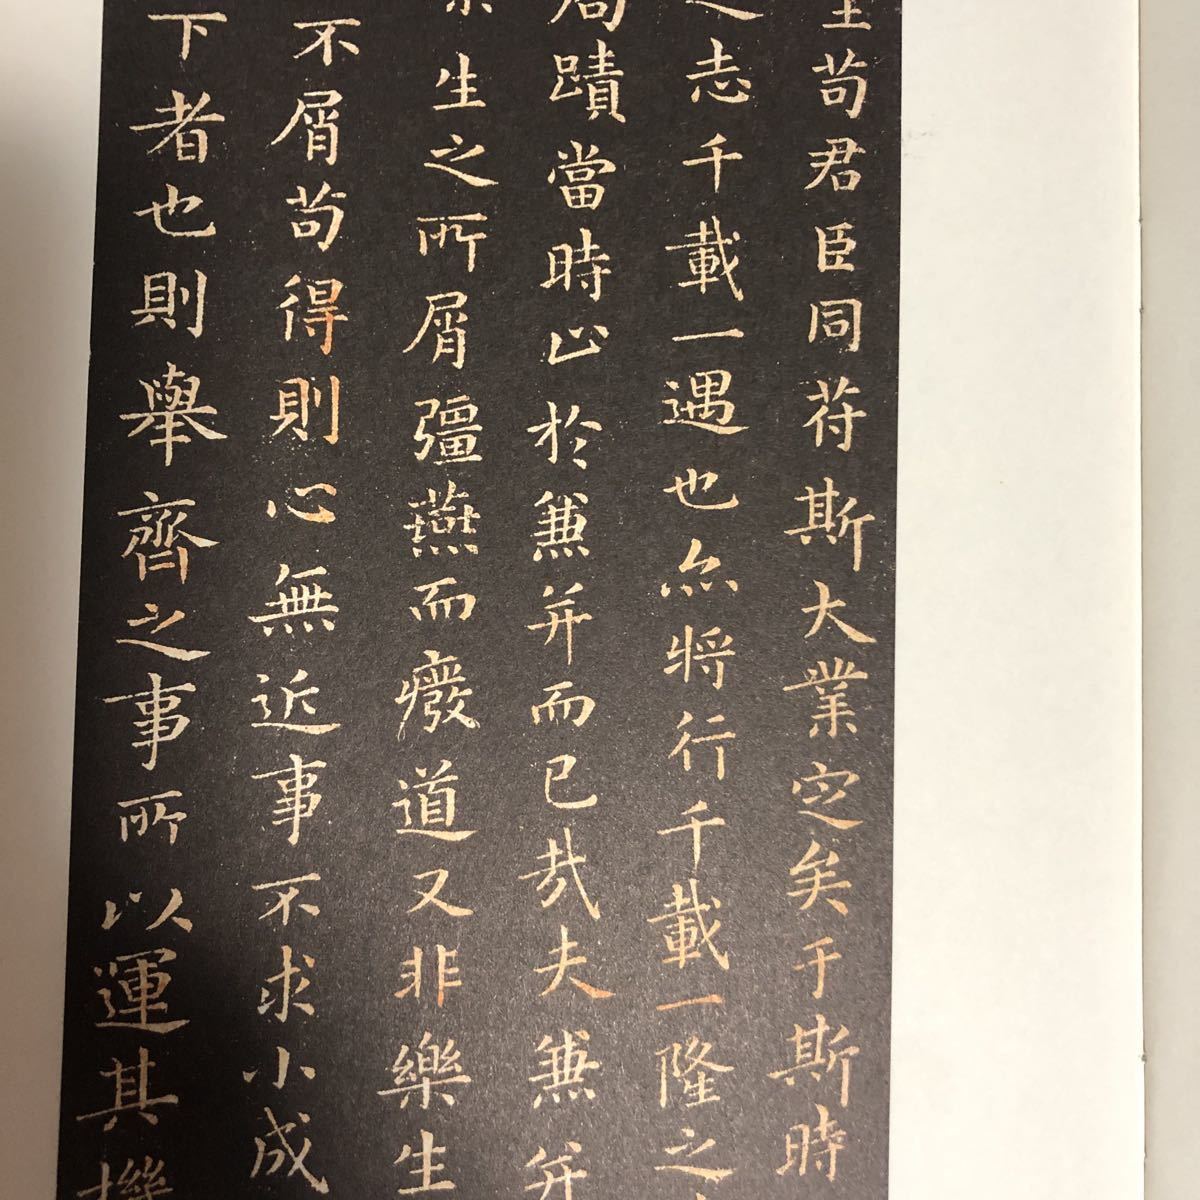 主苟君臣同苻斯大業㝎矣于斯時
之志千載一遇也亦將行千載一隆之
局蹟當時止於兼并而已哉夫兼并
樂生之所屑彊燕而癈道又非樂生
不屑苟得則心無近事不求小成
下者也則舉齊之事所以運其機